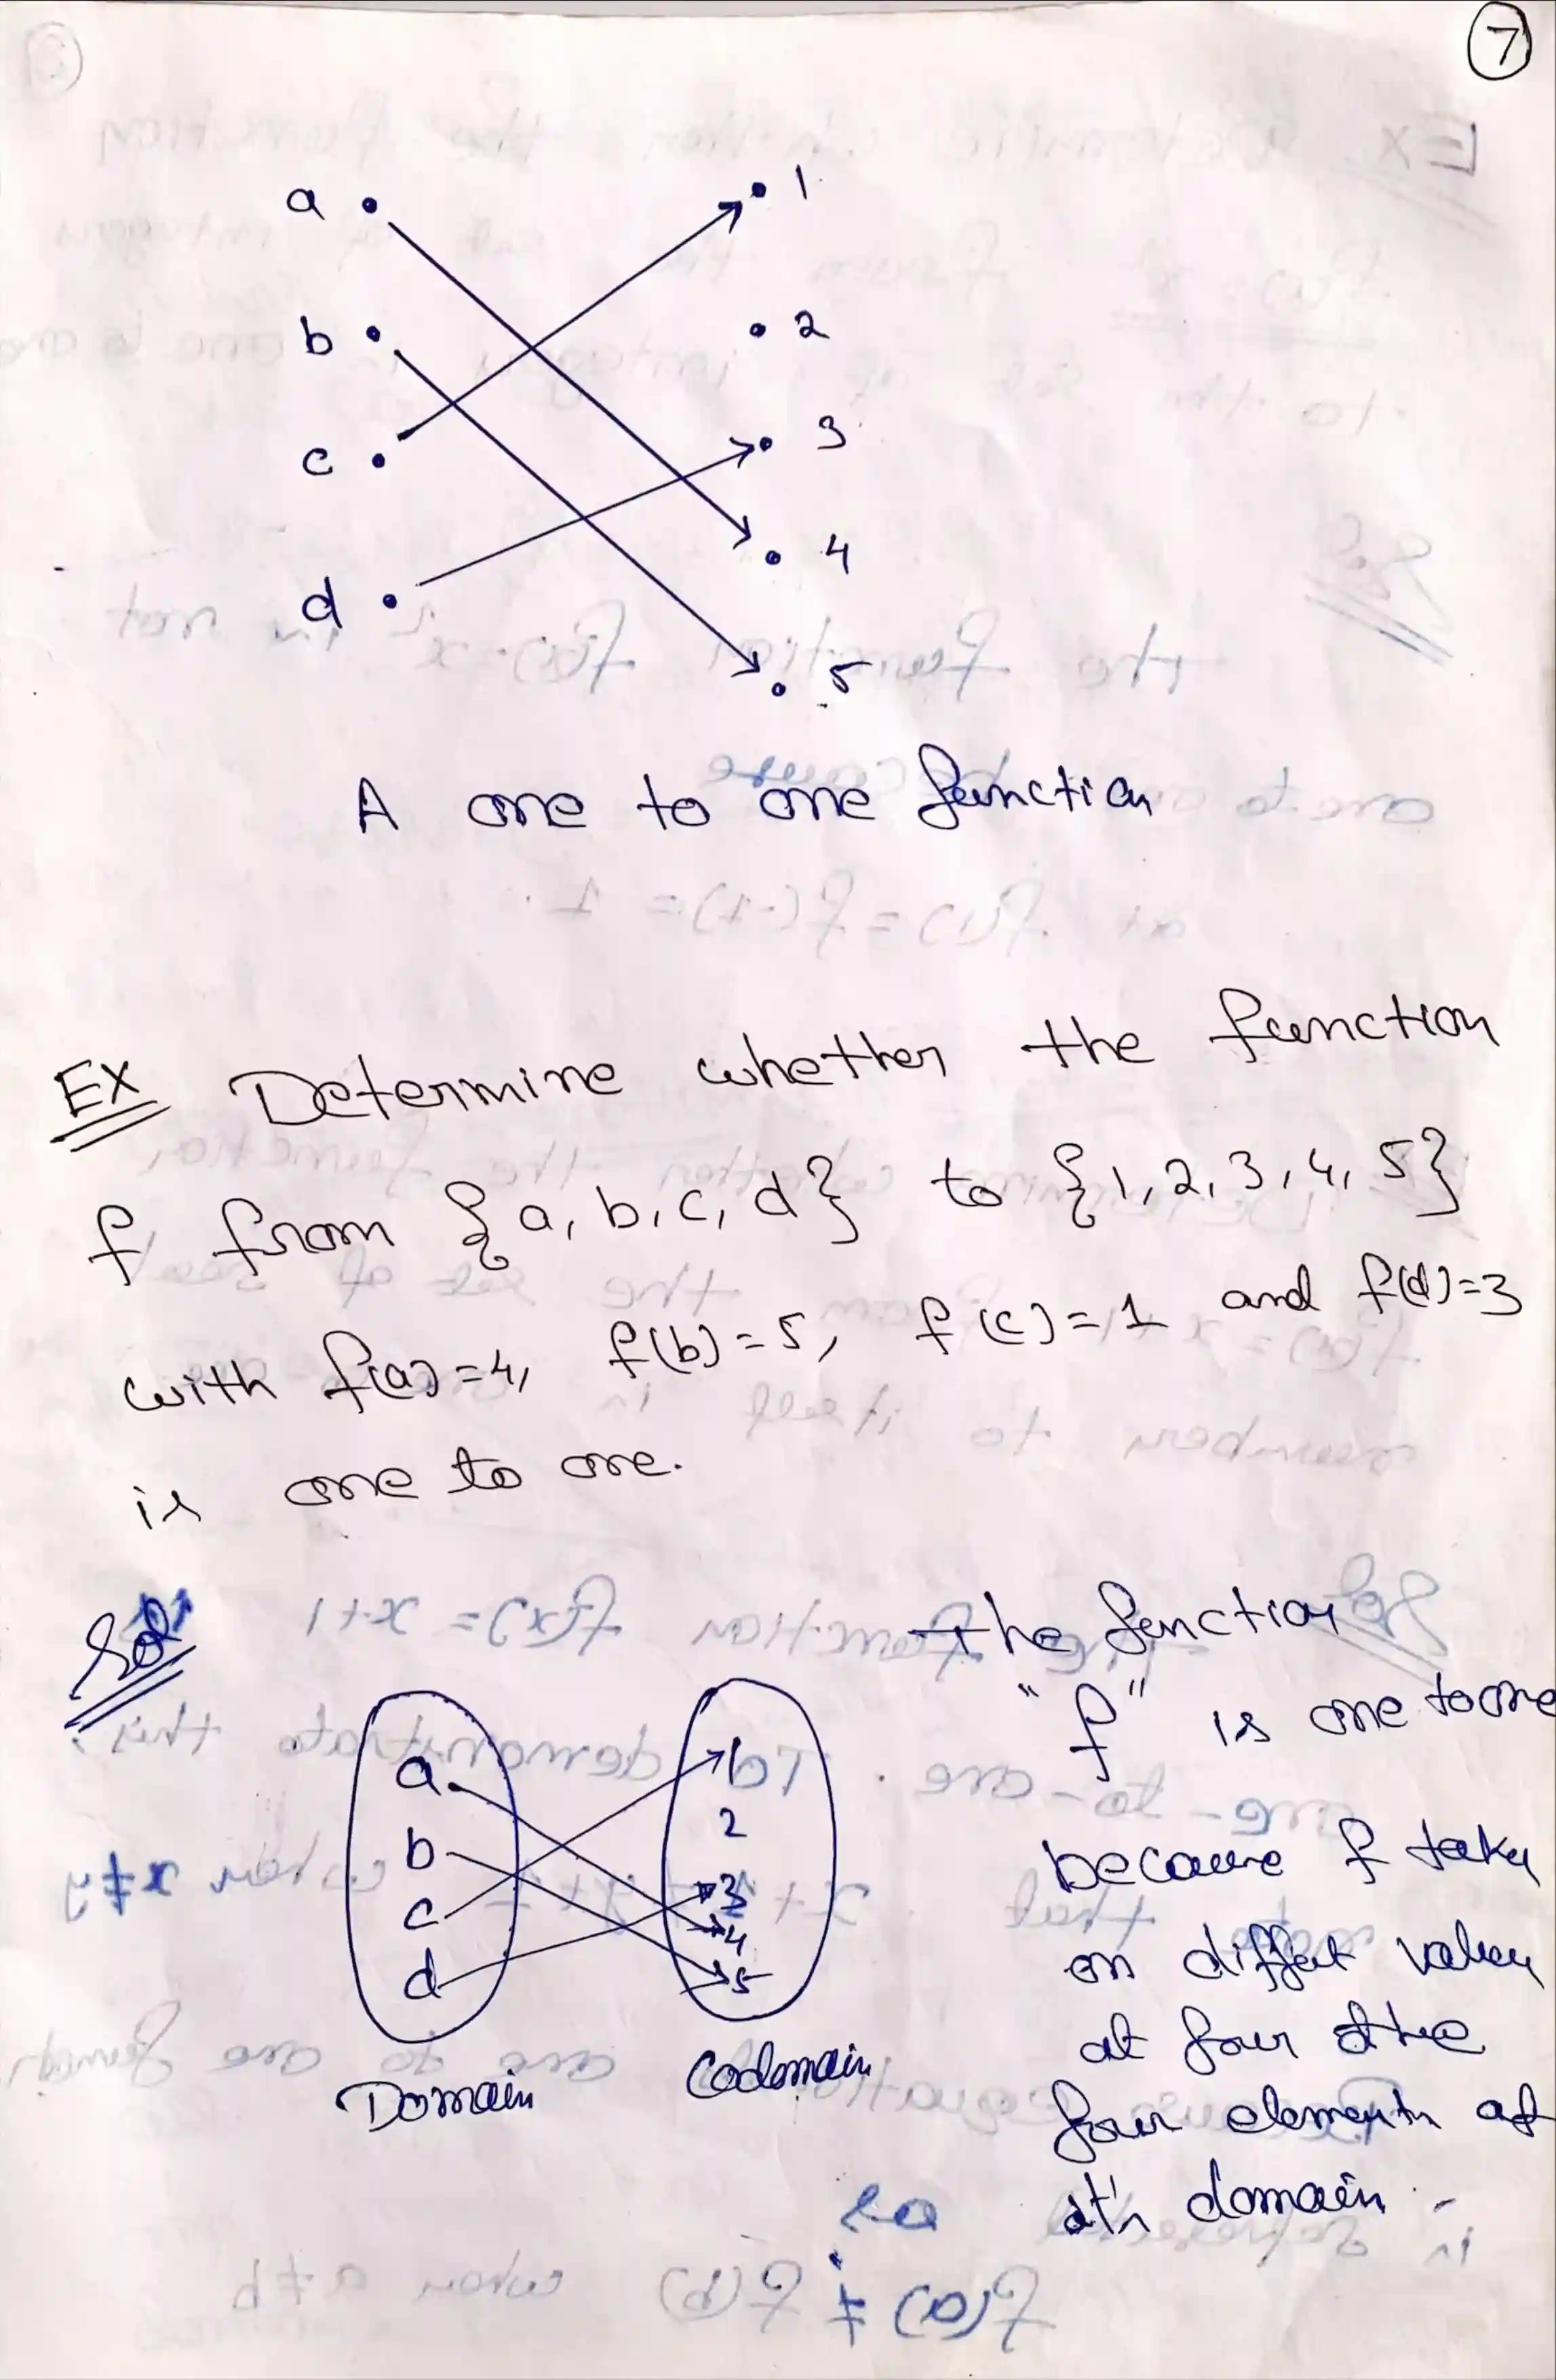 7
a 1
b 2
c 3
d 4
5
A one to one function
Ex Determine whether the function
f from {a, b, c, d} to {1, 2, 3, 4, 5}
with f(a)=4, f(b)=5, f(c)=1 and f(d)=3
is one to one.
Sol the function
"f" is one to one
because f take
on differt value
at four the
four elements of
it's domain.
a 1
b 2
c 3
d 4
5
Domain Codomain